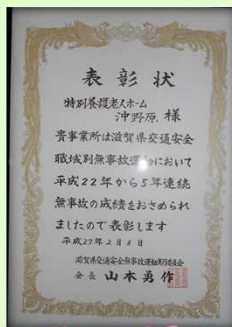 表彰状
特別養護老人ホーム
沖野原 様
貴事業所は滋賀県交通安全
職域別無事故運動において
平成22年から5年連続
無事故の成績をおさめられ
ましたので表彰します
平成27年2月6日
滋賀県交通安全無事故運動実行委員会
会長 山本勇作